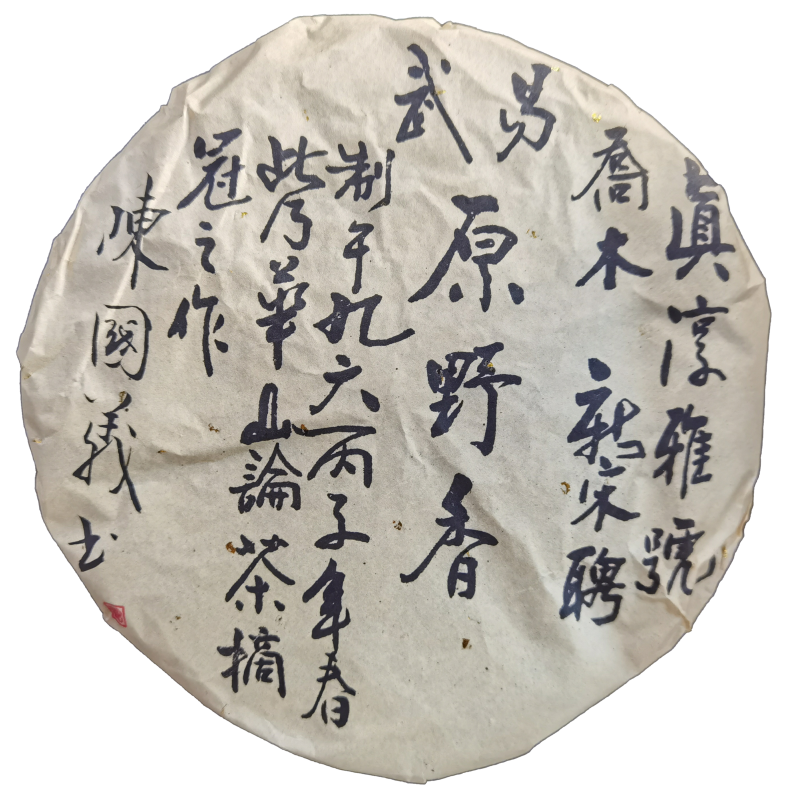 眞淳雅號
喬木 新宋聘
易武
原野香
制于九六丙子年春
此乃華山論茶摘
冠之作
陳國義书